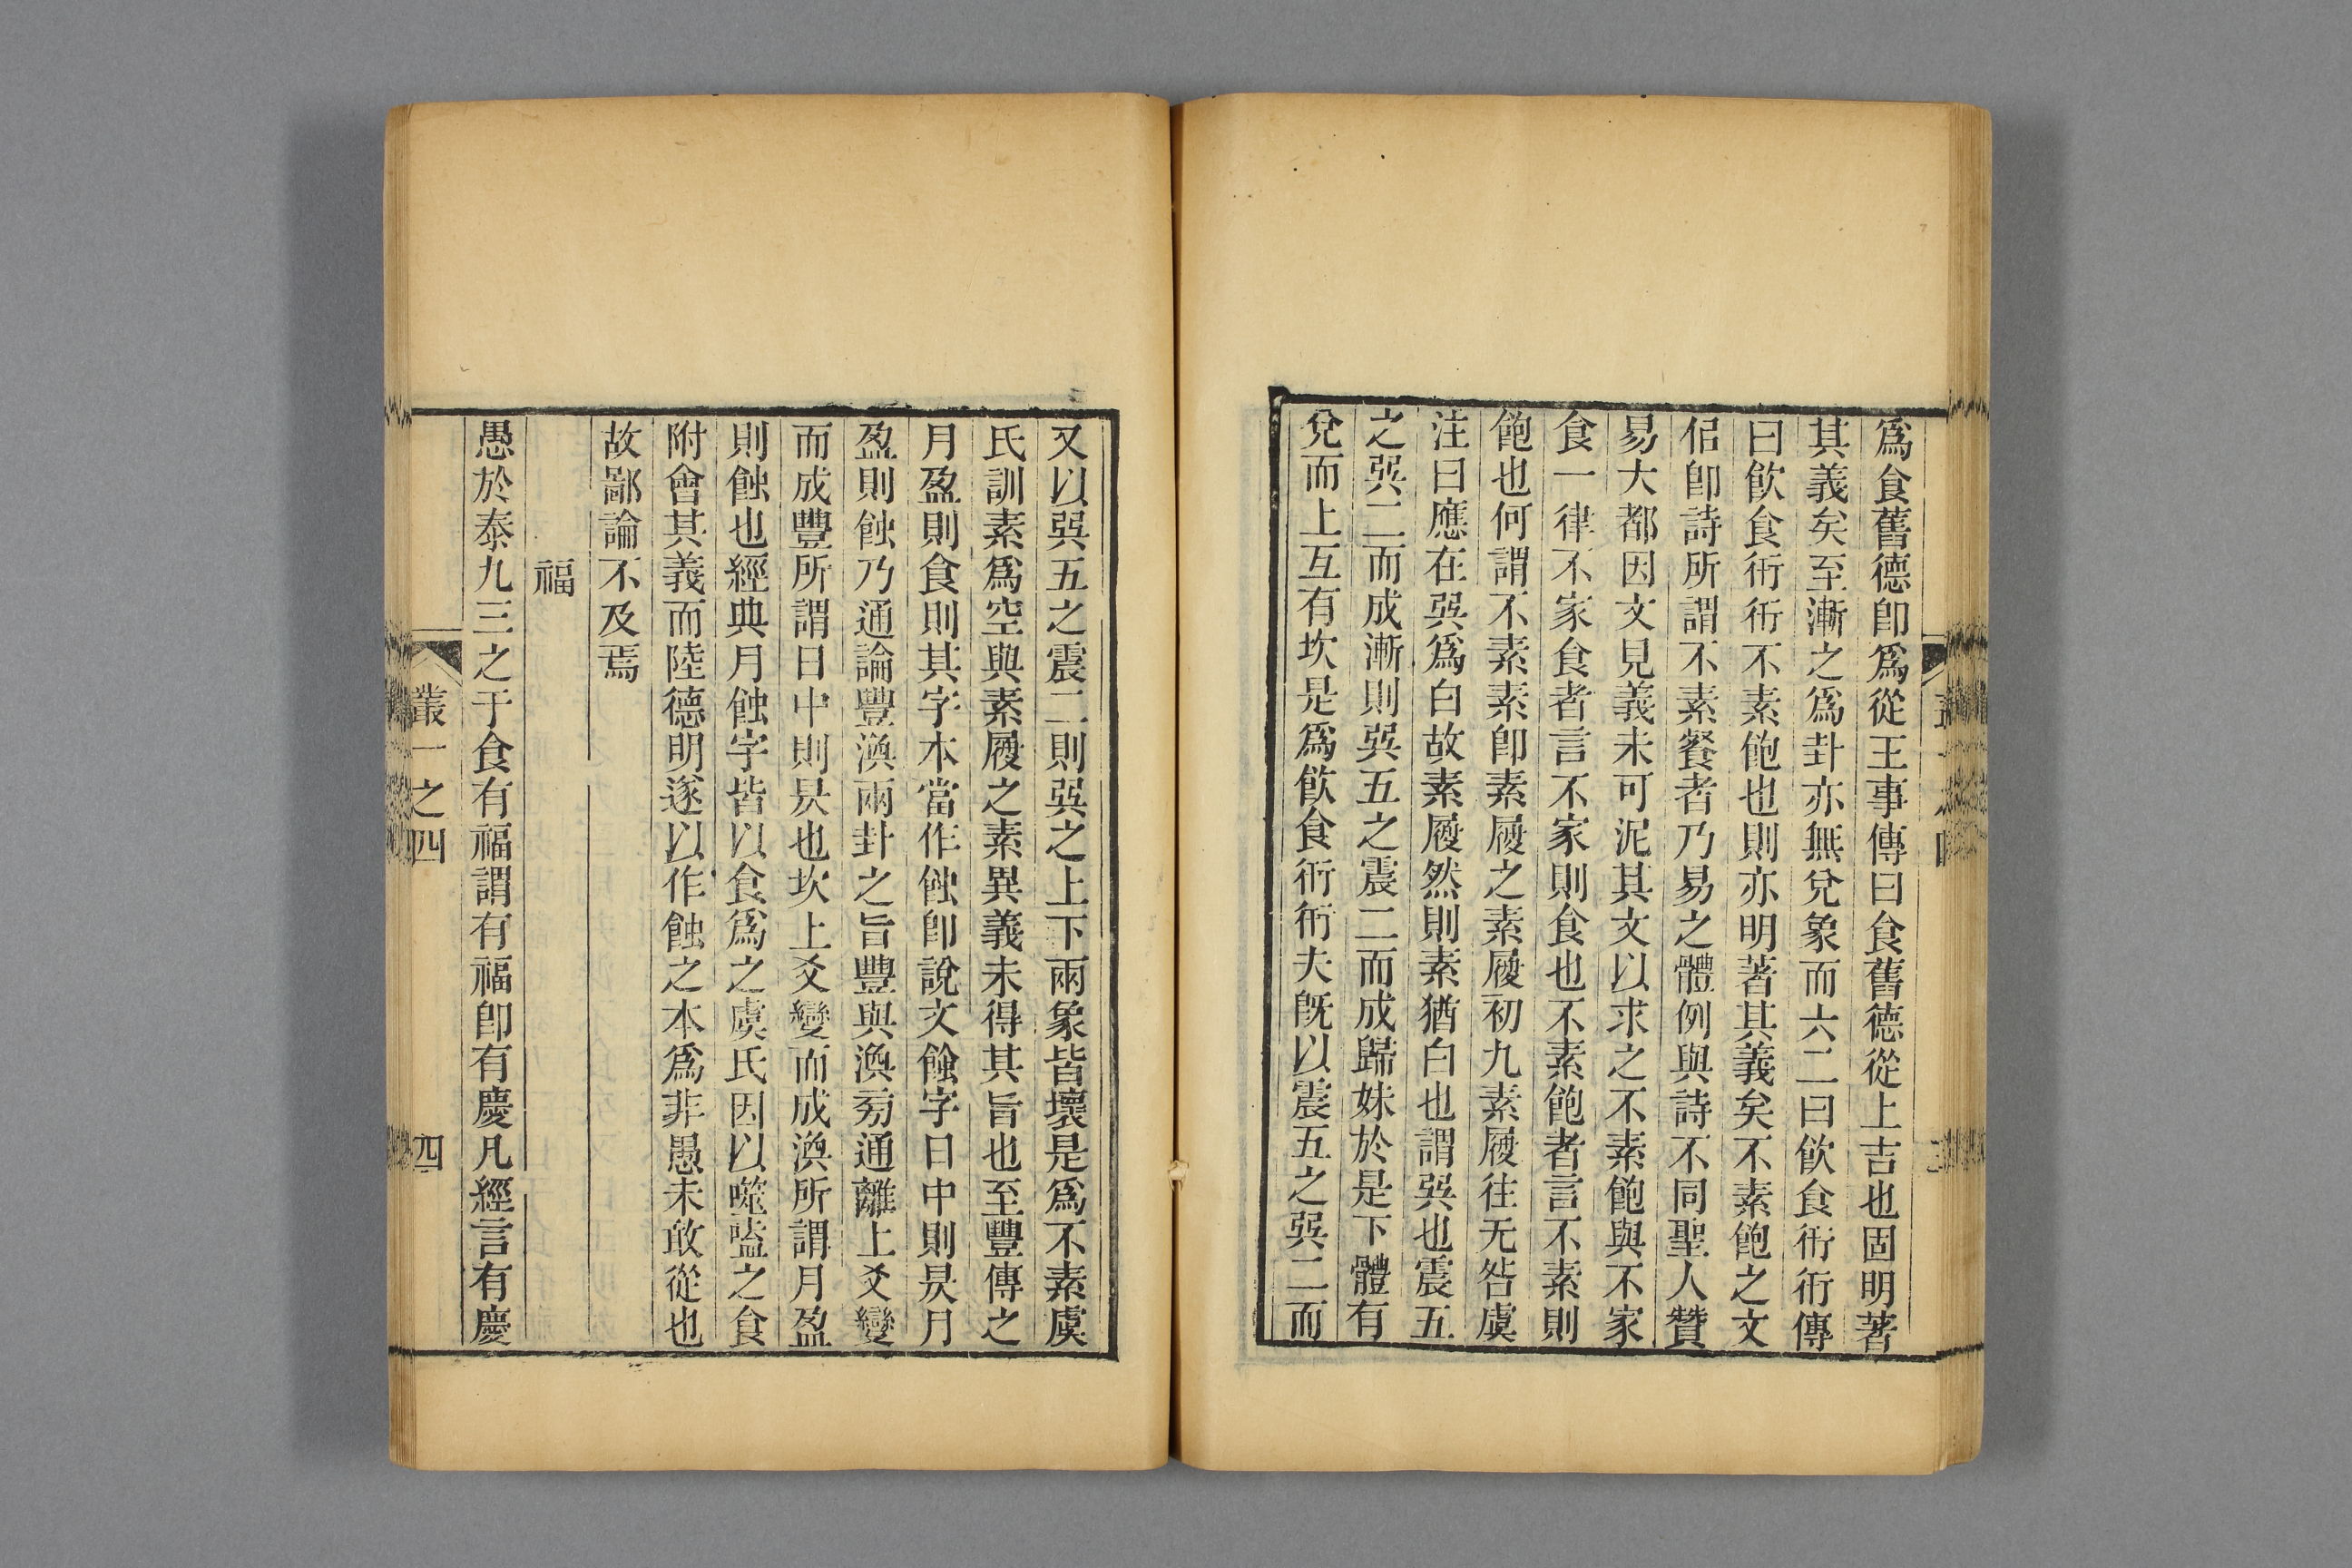 爲食舊德卽爲從王事傳曰食舊德從上吉也固明著
其義矣至漸之爲卦亦無兌象而六二曰飮食衎衎傳
曰飮食衎衎不素飽也則亦明著其義矣不素飽之文
侣卽詩所謂不素餐者乃易之體例與詩不同聖人贊
易大都因文見義未可泥其文以求之不素飽與不家
食一律不家食者言不家則食也不素飽者言不素則
飽也何謂不素素卽素履之素履初九素履往无咎虞
注曰應在巽爲白故素履然則素猶白也謂巽也震五
之巽二而成漸則巽五之震二而成歸妹於是下體有
兌而上互有坎是爲飮食衎衎夫旣以震五之巽二而
又以巽五之震二則巽之上下兩象皆壞是爲不素虞
氏訓素爲空與素履之素異義未得其旨也至豐傳之
月盈則食則其字本當作蝕卽說文餯字日中則昃月
盈則蝕乃通論豐渙兩卦之旨豐與渙㫄通離上爻變
而成豐所謂日中則昃也坎上爻變而成渙所謂月盈
則蝕也經典月蝕字皆以食爲之虞氏因以噬嗑之食
附會其義而陸德明遂以作蝕之本爲非愚未敢從也
故鄙論不及焉
福
愚於泰九三之于食有福謂有福卽有慶凡經言有慶
叢一之四
四